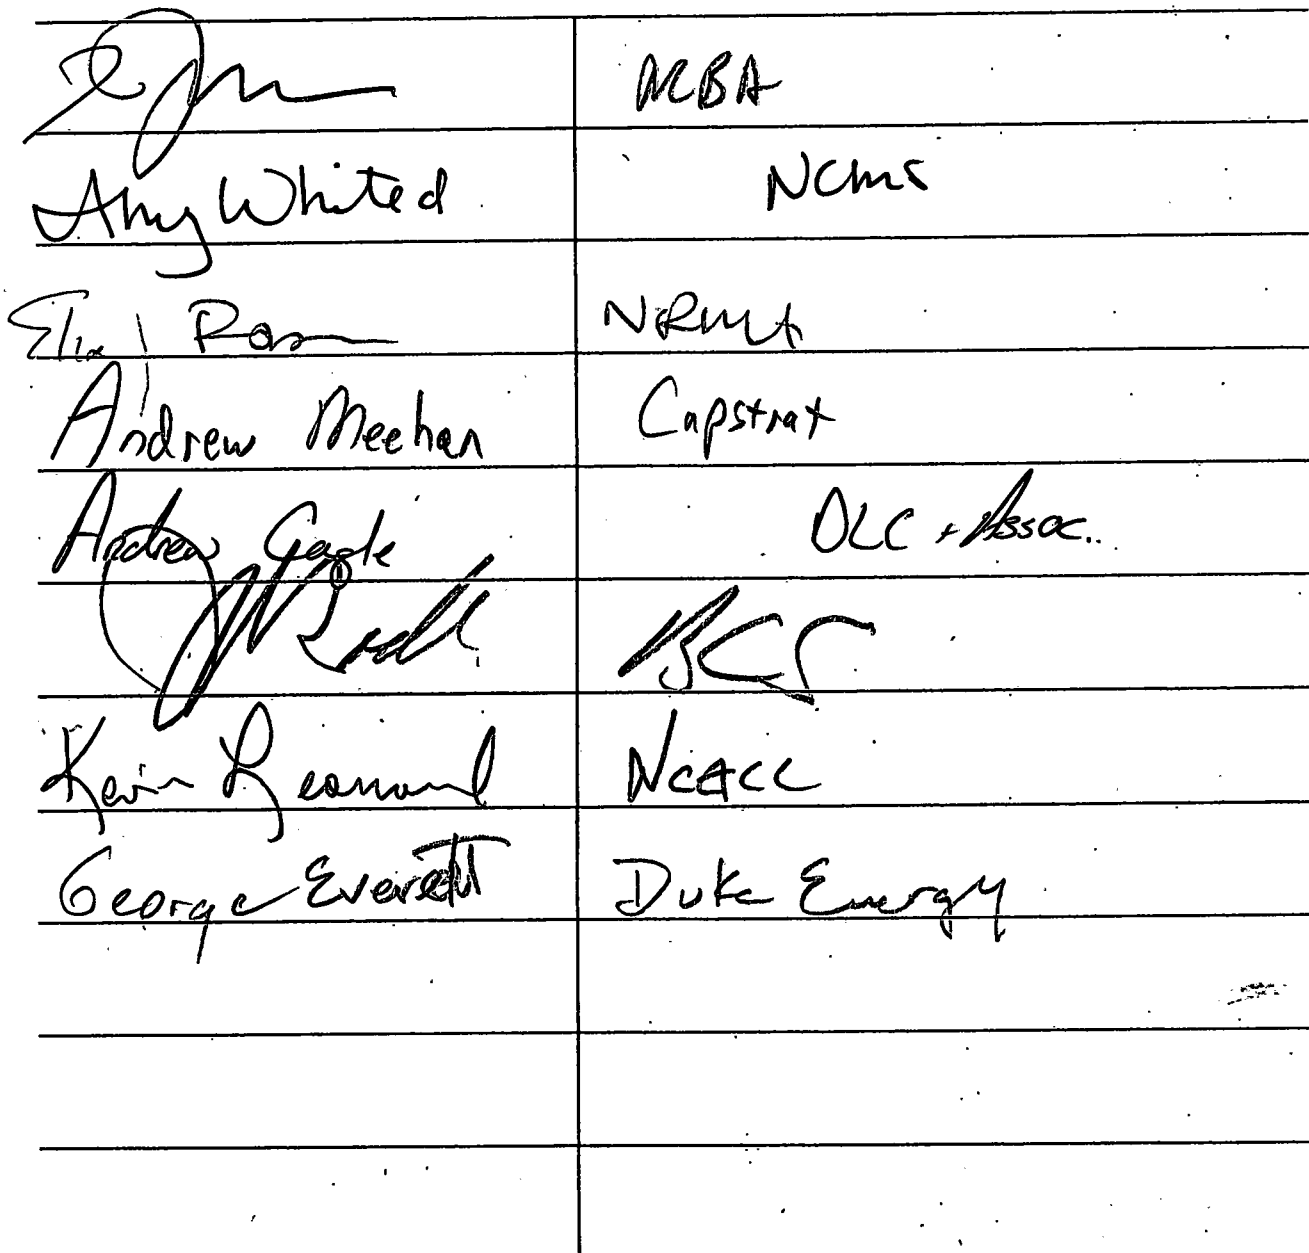 NCBA
Amy Whited NCMS
NRMA
Andrew Meehan Capstrat
Andrew Gagle DLC + Assoc.
Kevin Leonard NCACC
George Everett Duke Energy